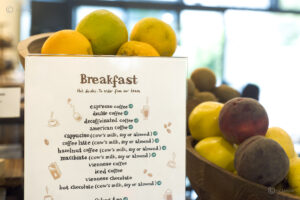 Breakfast
Hot drinks to order from our team
espresso coffee
double coffee
decaffeinated coffee
american coffee
cappuccino (cow's milk, soy or almond)
coffee latte (cow's milk, soy or almond)
hazelnut coffee (cow's milk, soy or almond)
macchiato (cow's milk, soy or almond)
viennese coffee
iced coffee
viennese chocolate
hot chocolate (cow's milk, soy or almond)